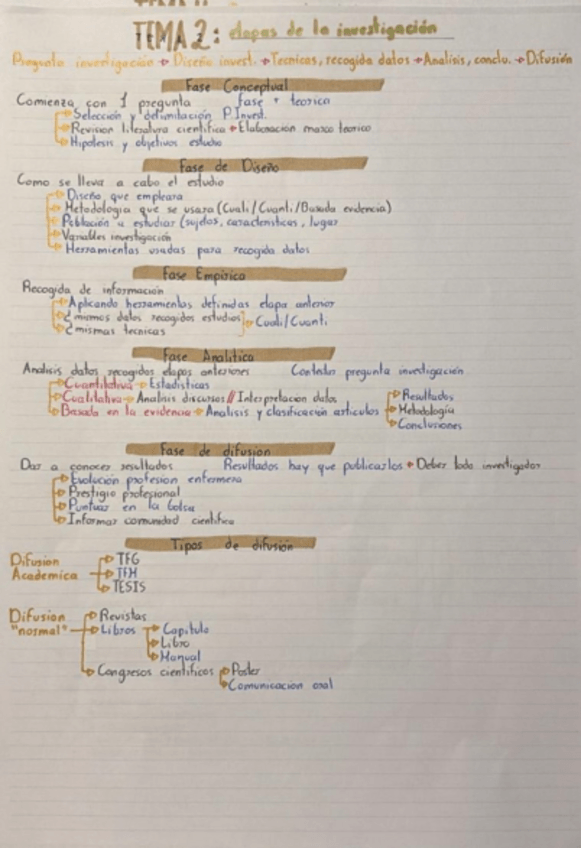 TEMA 2: etapas de la investigación
Pregunta investigación → Diseño invest. → Tecnicas, recogida datos → Analisis, conclu. → Difusión
Fase Conceptual
Comienza con 1 pregunta fase + teorica
Selección y delimitación P.Invest.
Revision literatura cientifica → Elaboración marco teorico
Hipotesis y objetivos estudio
Fase de Diseño
Como se lleva a cabo el estudio
Diseño que empleara
Metodologia que se usara (Cuali/Cuanti/Basada evidencia)
Población a estudiar (sujetos, caracteristicas, lugar
Variables investigación
Herramientas usadas para recogida datos
Fase Empirica
Recogida de información
Aplicando herramientas definidas etapa anterior
¿mismos datos recogidos estudios → Cuali/Cuanti
¿mismas tecnicas
Fase Analitica
Analisis datos recogidos etapas anteriores Contestar pregunta investigación
Cuantitativa → Estadisticas
Cualitativa → Analisis discursos // Interpretacion datos
Basada en la evidencia → Analisis y clasificación articulos → Resultados
Metodologia
Conclusiones
Fase de difusion
Dar a conocer resultados Resultados hay que publicarlos → Deber todo investigador
Evolución profesion enfermera
Prestigio profesional
Puntuar en la bolsa
Informar comunidad cientifica
Tipos de difusión
Difusion Academica
TFG
TFM
TESIS
Difusion "normal"
Revistas
Libros → Capitulo
Libro
Manual
Congresos cientificos → Poster
Comunicacion oral